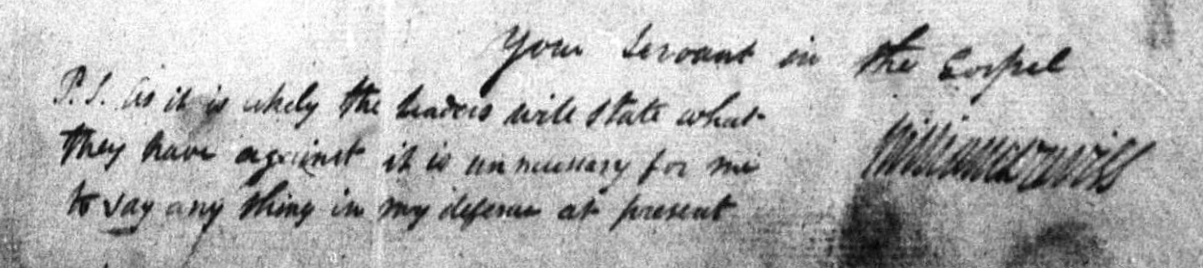 Your Servant in the Gospel
P.S. As it is likely the leaders will state what
they have against it is unnecessary for me
to say any thing in my defence at present
William Davies